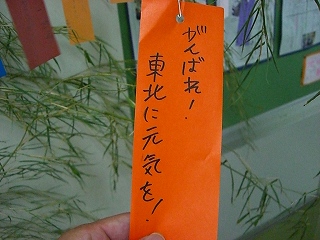 がんばれ！
東北に元気を！